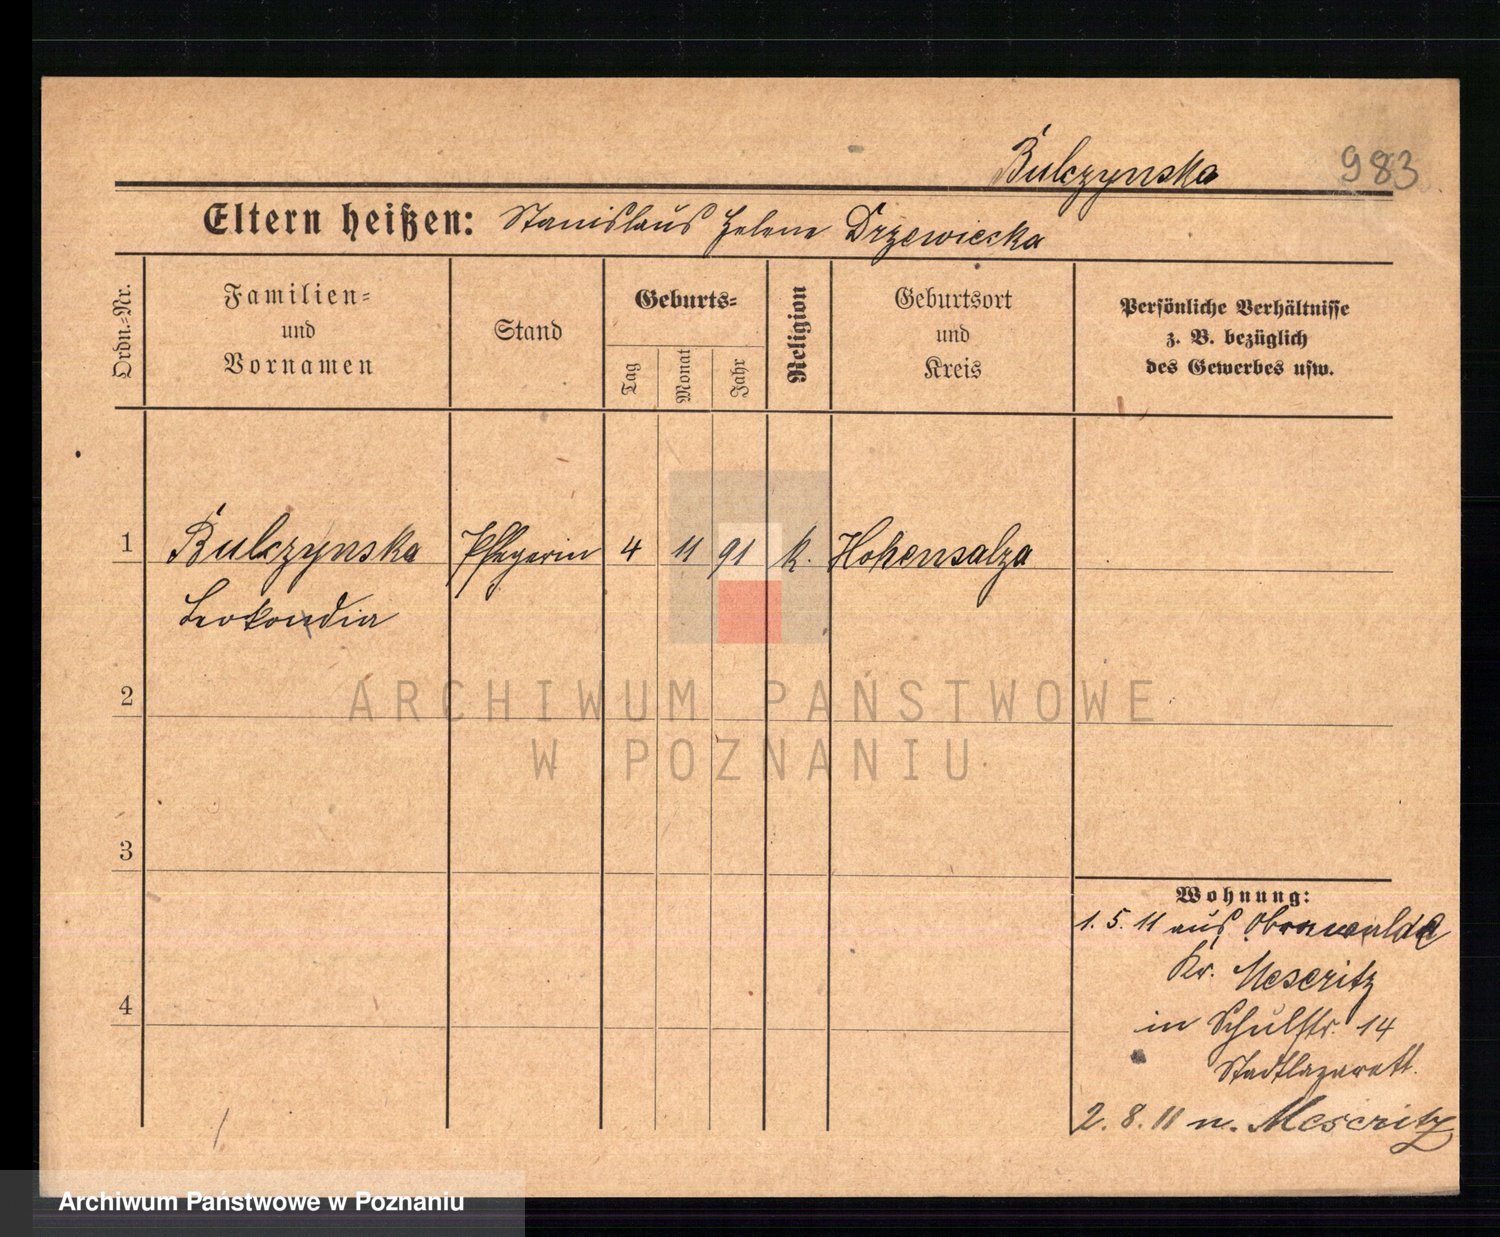 Bulczynska 983
Eltern heißen: Stanislaus Helene Drzewiecka
Ordn.-Nr.
Familien-
und
Vornamen
Stand
Geburts-
Tag
Monat
Jahr
Religion
Geburtsort
und
Kreis
Persönliche Verhältnisse
z. B. bezüglich
des Gewerbes usw.
1 Bulczynska Pflegerin 4 11 91 k. Hohensalza
Leokondia
2
ARCHIWUM PAŃSTWOWE
W POZNANIU
3
Wohnung:
1. 5. 11 aus Obrawalde
Kr. Meseritz
4
in Schulstr. 14
Stadtlazarett.
2. 8. 11 n. Meseritz
Archiwum Państwowe w Poznaniu